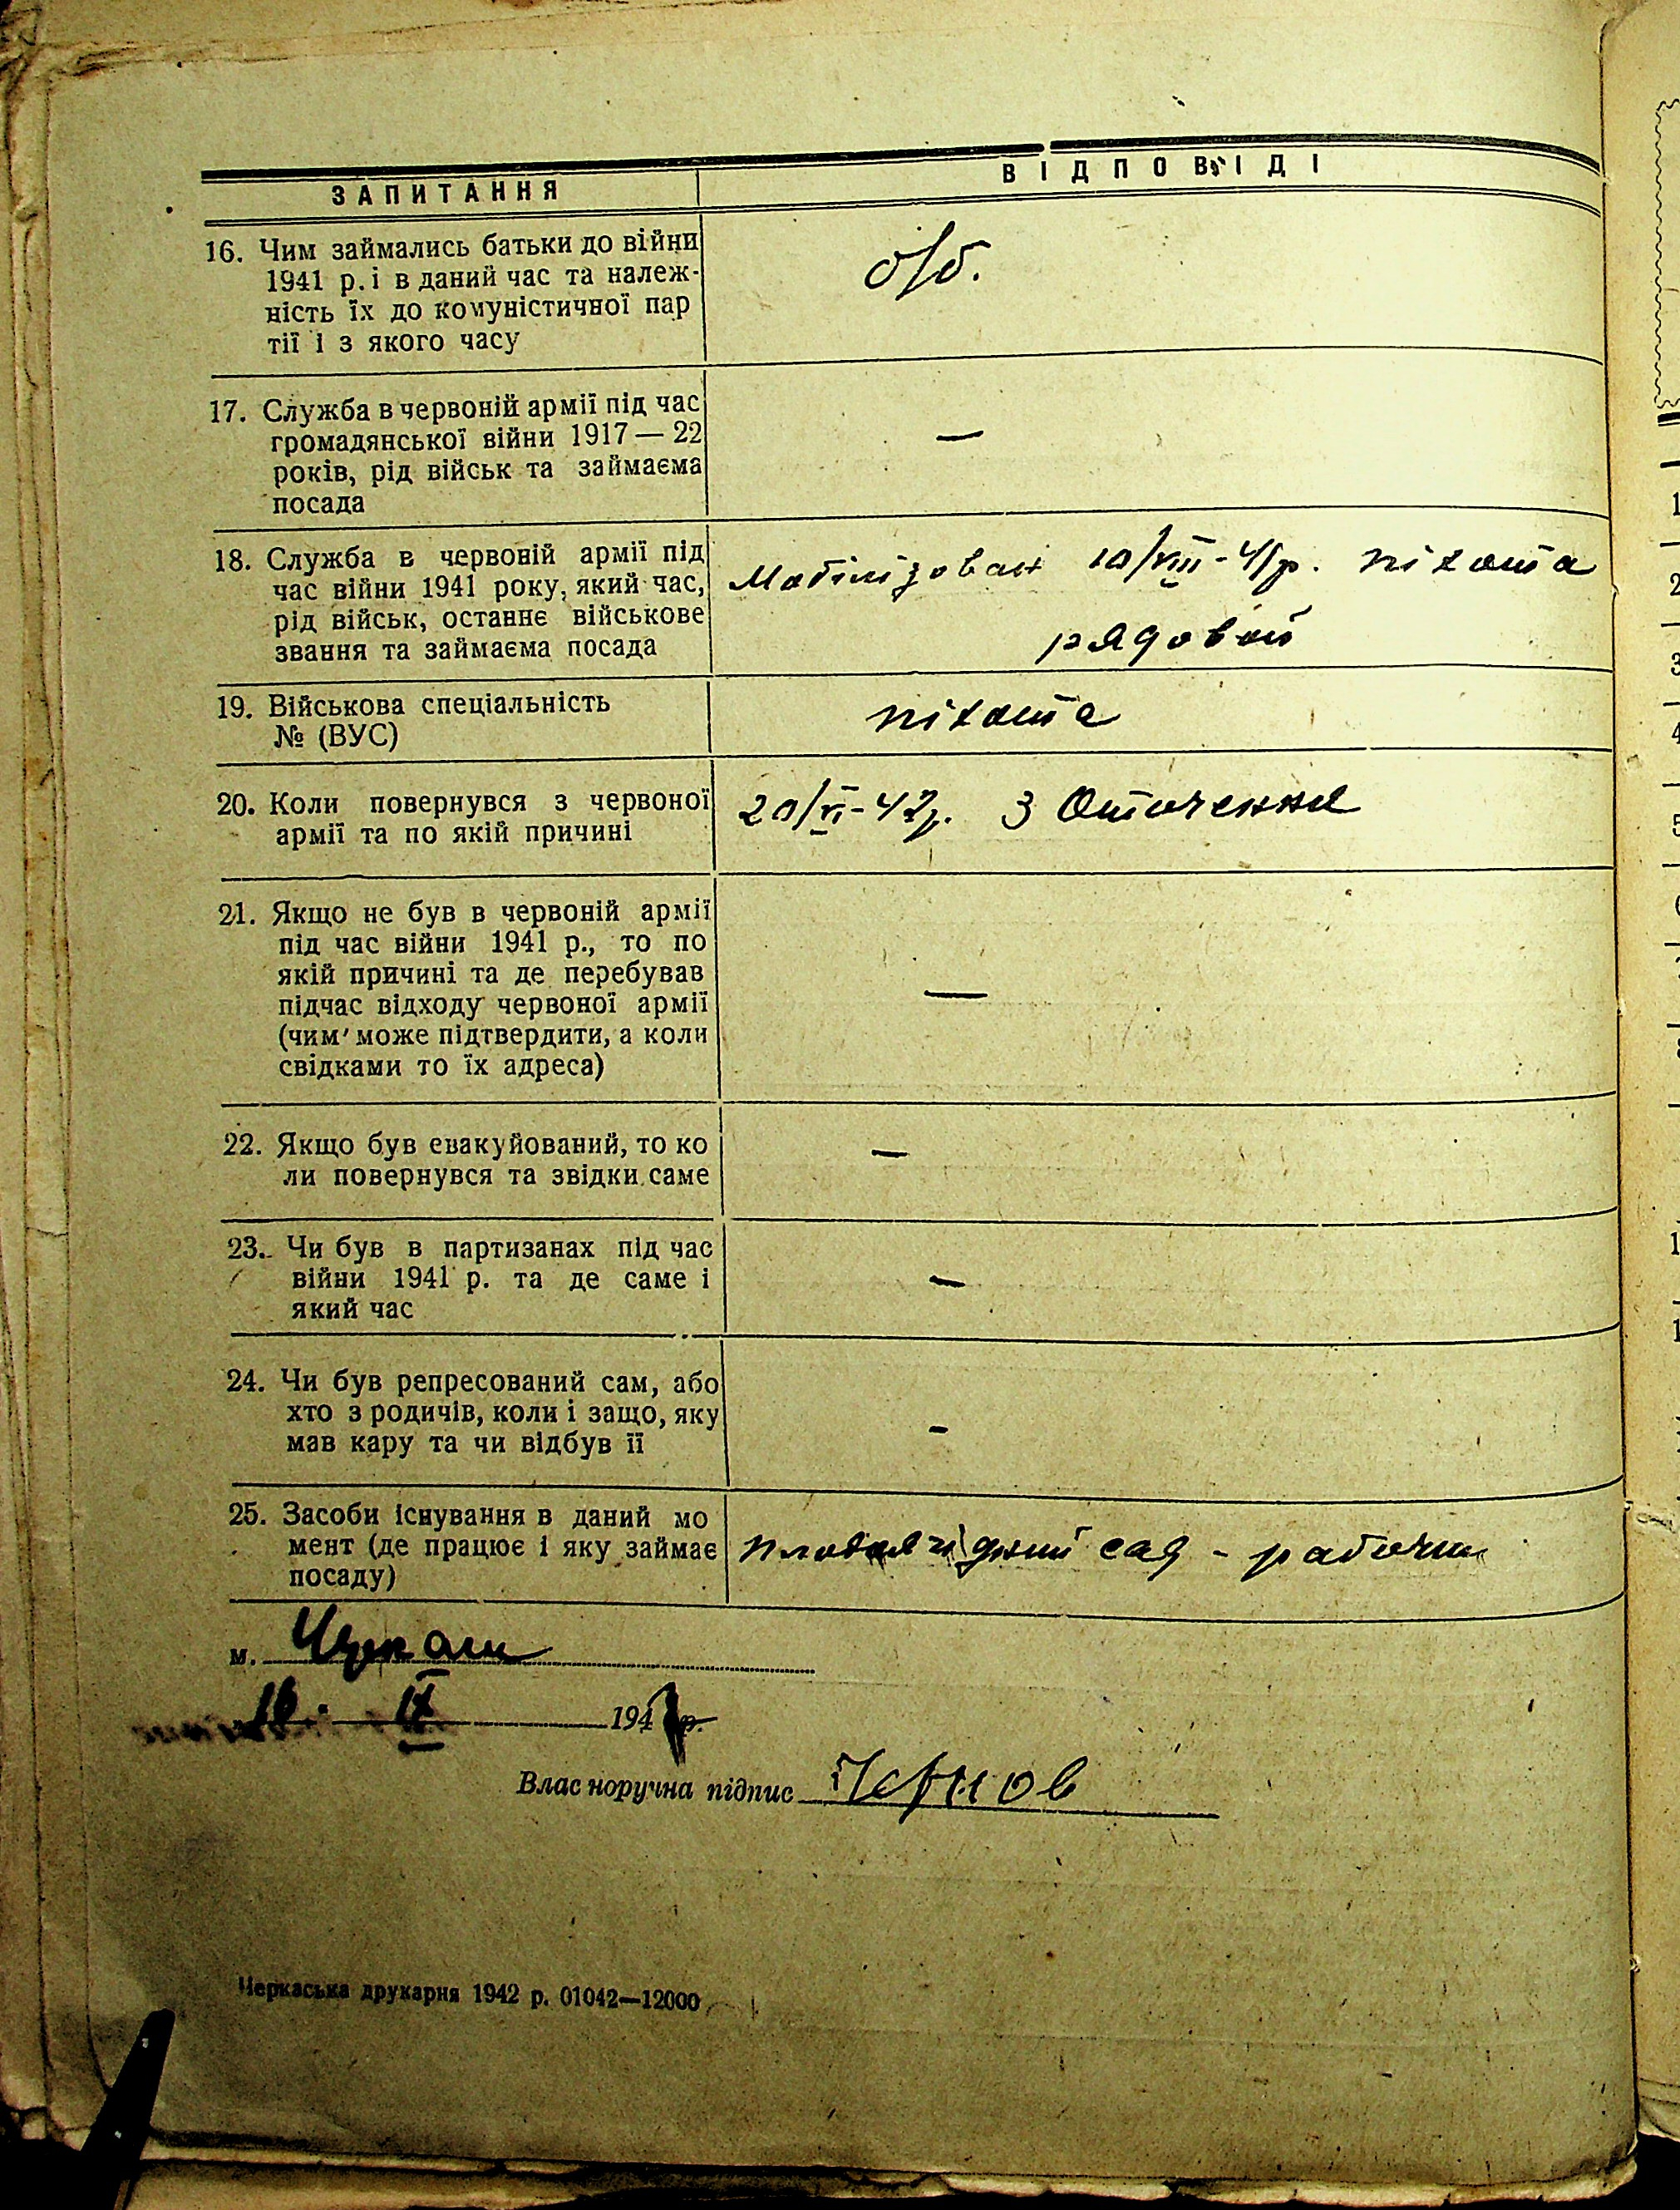 ЗАПИТАННЯ
ВІДПОВІДІ
16. Чим займались батьки до війни
1941 р. і в даний час та належ-
ність їх до комуністичної пар
тії і з якого часу
б/б.
17. Служба в червоній армії під час
громадянської війни 1917 — 22
років, рід військ та займаєма
посада
—
18. Служба в червоній армії під
час війни 1941 року, який час,
рід військ, останнє військове
звання та займаєма посада
Мобілізован 10/VIII-41р. піхота
рядовой
19. Військова спеціальність
№ (ВУС)
піхота
20. Коли повернувся з червоної
армії та по якій причині
20/VI-42р. З Оточення
21. Якщо не був в червоній армії
під час війни 1941 р., то по
якій причині та де перебував
підчас відходу червоної армії
(чим може підтвердити, а коли
свідками то їх адреса)
—
22. Якщо був евакуйований, то ко
ли повернувся та звідки саме
—
23. Чи був в партизанах під час
війни 1941 р. та де саме і
який час
—
24. Чи був репресований сам, або
хто з родичів, коли і защо, яку
мав кару та чи відбув її
-
25. Засоби існування в даний мо
мент (де працює і яку займає
посаду)
сад - рабочим
м.
IX 194 р.
Власноручна підпис Чернов
Черкаська друкарня 1942 р. 01042—12000